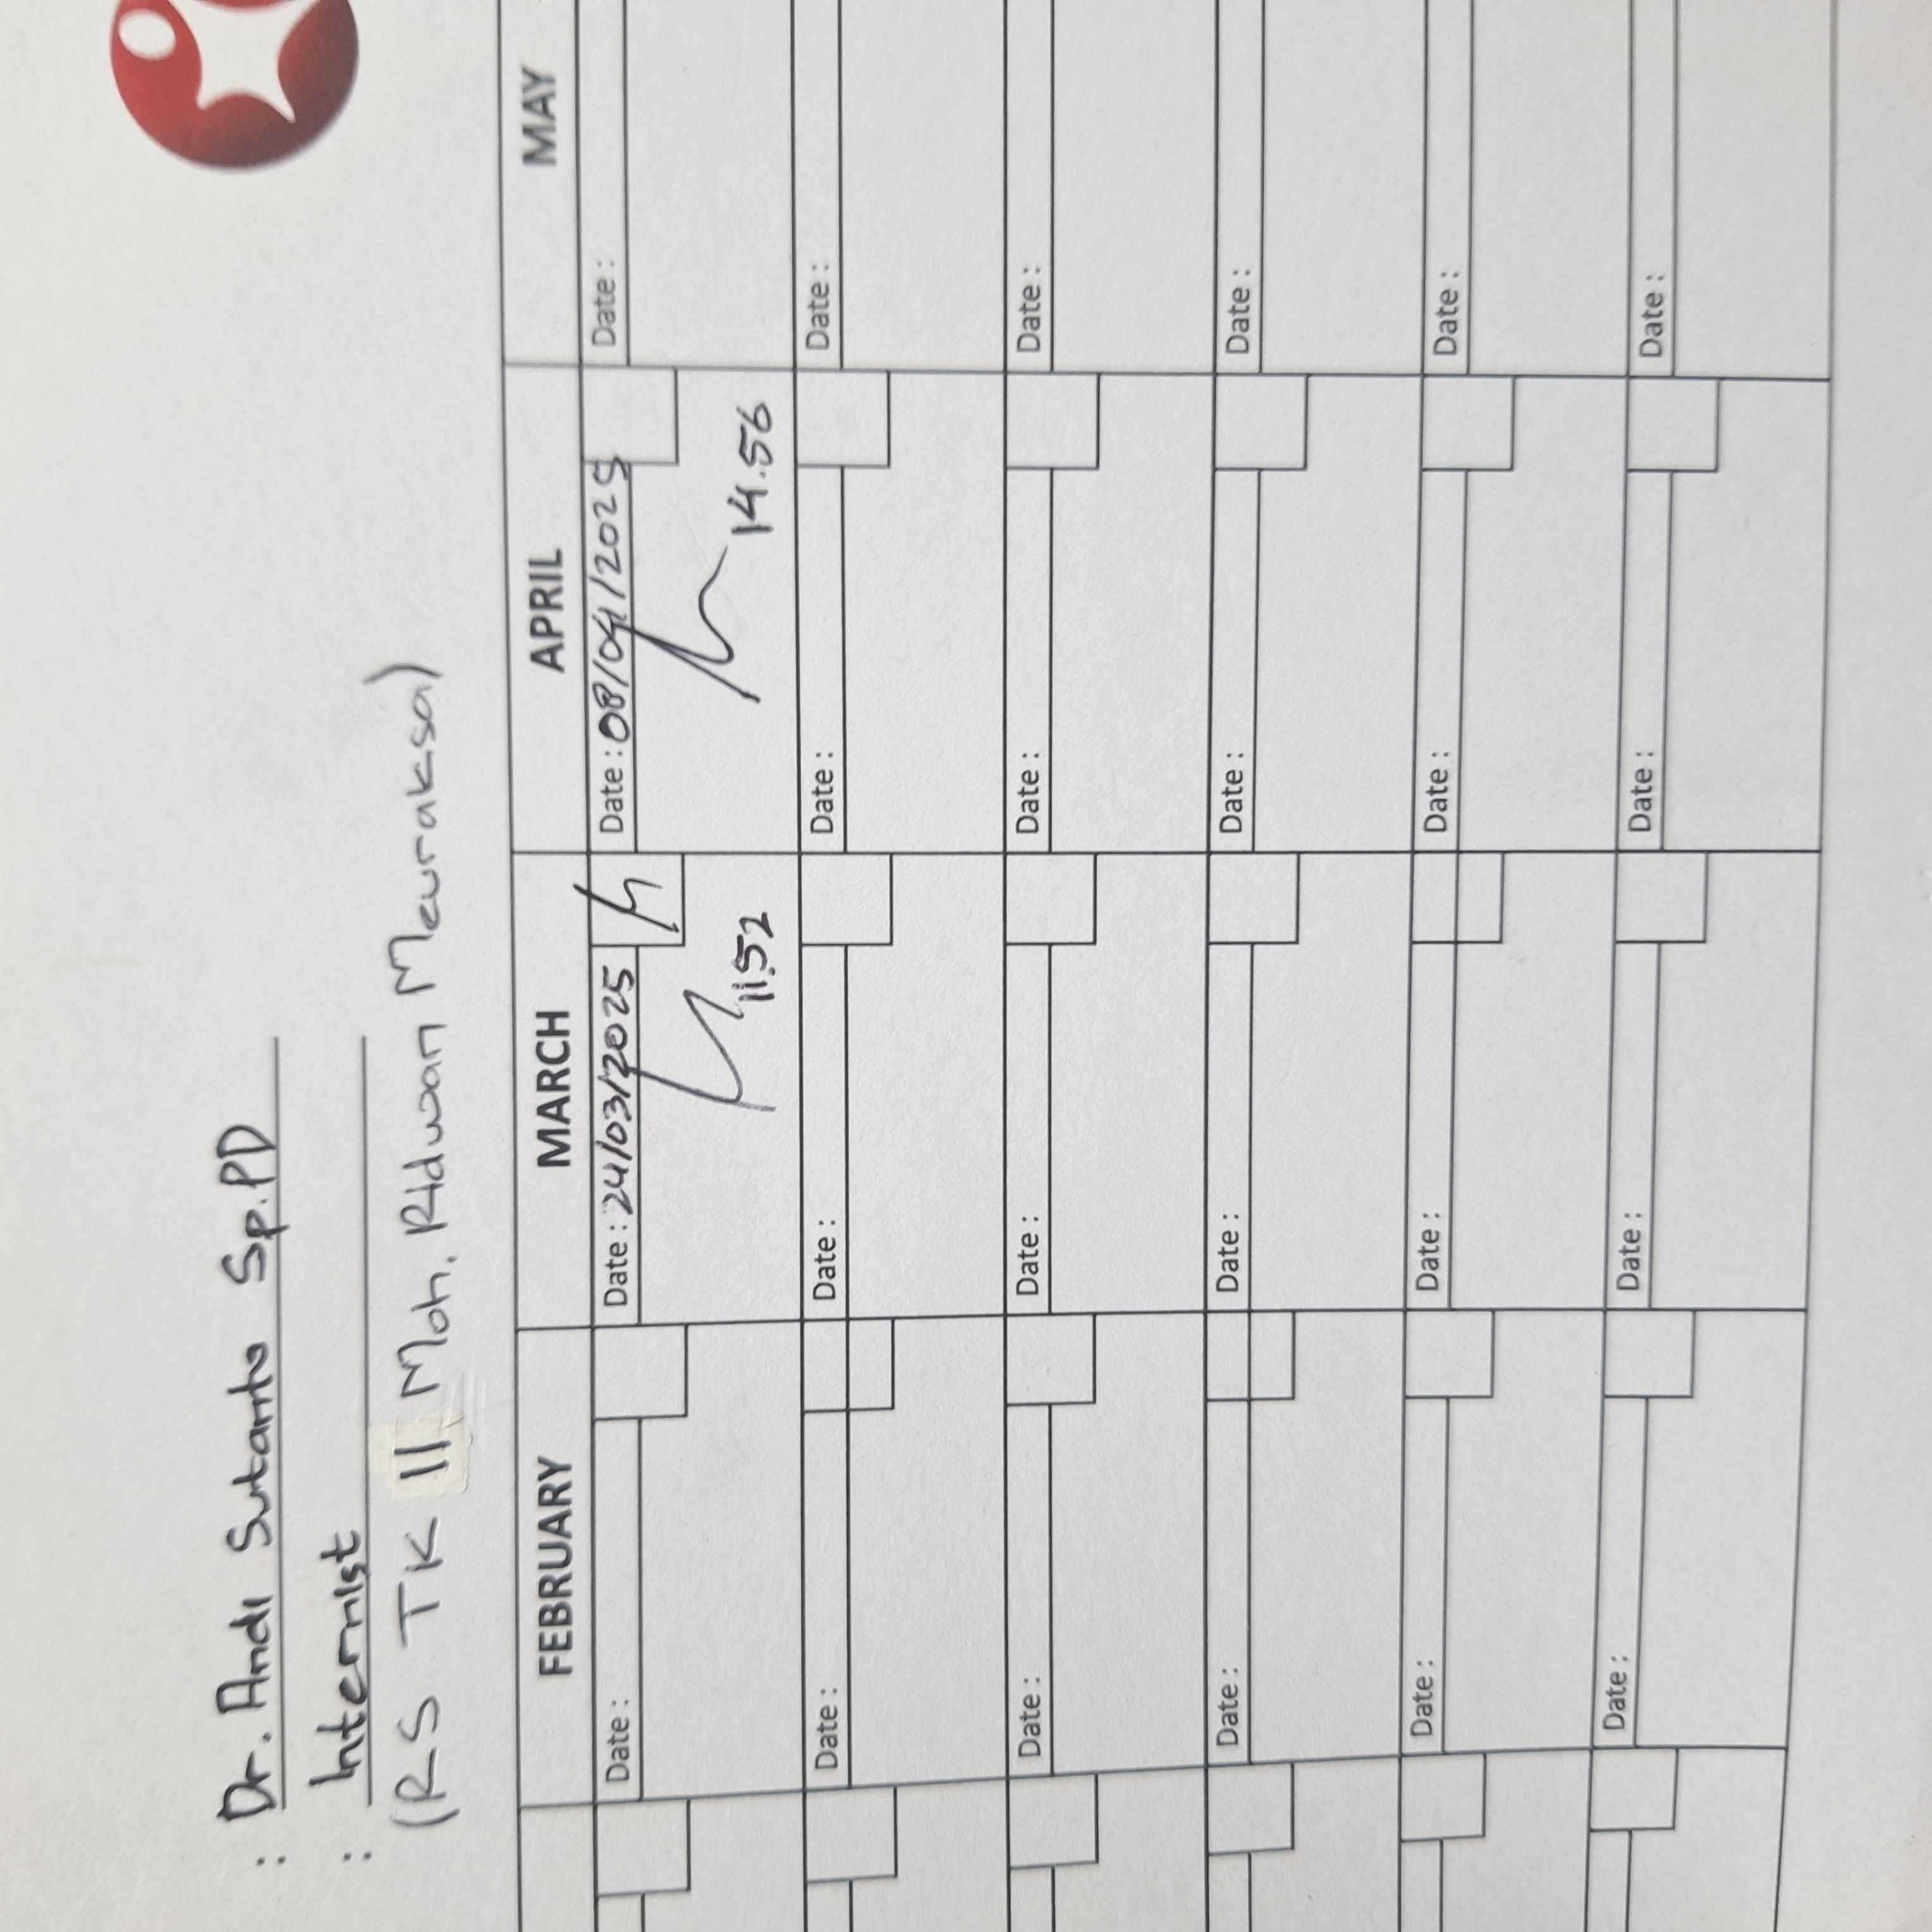 : Dr. Andi Sutanto Sp.PD
: Internist
(RS TK II Moh. Ridwan Meuraksa)
FEBRUARY MARCH APRIL MAY
Date : Date : 24/03/2025 Date : 08/04/2025 Date :
11.52 14.56
Date : Date : Date : Date :
Date : Date : Date : Date :
Date : Date : Date : Date :
Date : Date : Date : Date :
Date : Date : Date : Date :